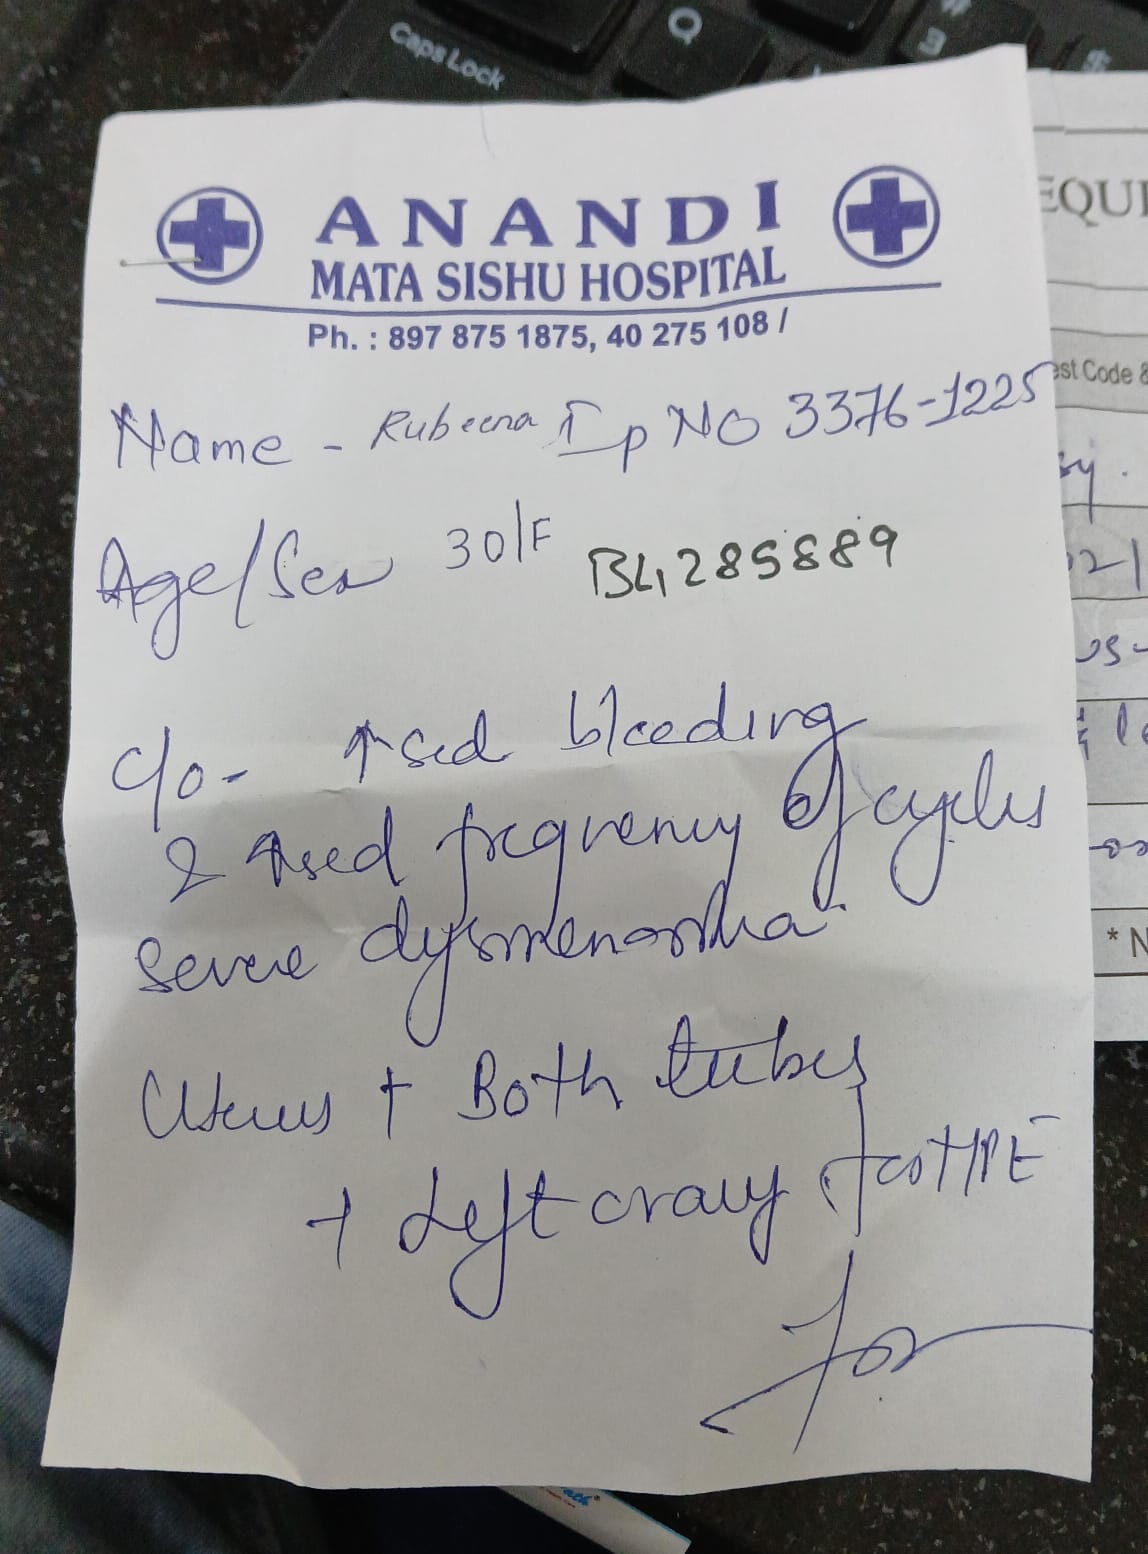 Caps Lock
Q
#
3
$
ANANDI
MATA SISHU HOSPITAL
Ph. : 897 875 1875, 40 275 108 /
Name - Rubeena Ip NO 3376-1225
Age/Sex 30/F
BL1285889
c/o- ↑sed bleeding
& ↑sed frequency of cycles
severe dysmenorrhea
Uterus + Both tubes
+ Left ovary for HPE
EQUI
est Code &
sy.
21
us-
* N